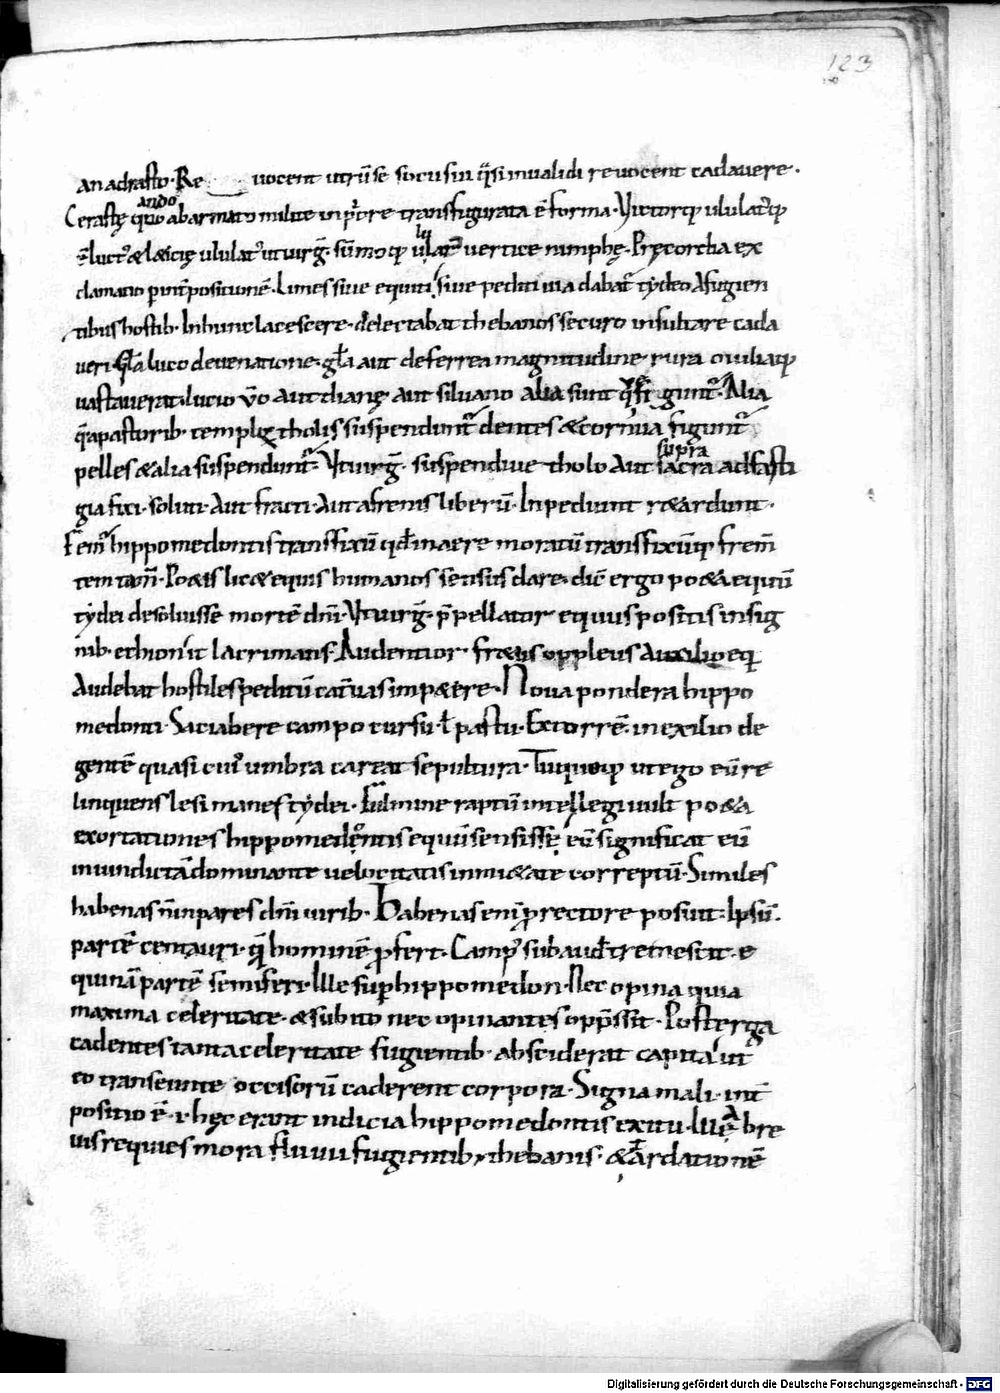 123
an adrasto. Re vocent utrū se socii sui q̄si invalidi revocent cadavere.
Cerastę quo abarmato milite in p̄ore transfigurata ē forma. Victorq; ululatꝰq;
ando
luctꝰ & lęticię ululatꝰ ut uirḡ. sūmoq; ulat vertice nimphę. Pręcordia ex
lu
clamatio p int̄positionē. Limes siue equiti siue pediti uia dabat̄ tydeo Afugien
tibus hostib. In hunc lacescere. delectabat thebanos securo insultare cada
veri. luco de venatione. gl̄a aut de ferrea magnitudine rura omīaq;
vastaverat. lucio v̄o aut dianę aut silvano alia sunt q̄ figunt̄. Alia
q̄ a pastorib. templis & tholis suspendunt̄ dentes & cornua figunt̄
pelles & alia suspendunt̄. Vt uirḡ. suspendive tholo Aut sacra ad fasti
supra
gia fixi. soluti. Aut fracti. Aut a frenis liberū. Inpediunt r&ardunt.
hippomedontis transfixū qd in aere moratū transfixūq; frem̄
tem Po&is lic& equis humanos sensus dare. dic̄ ergo po&a equū
tydei desoluisse mortē dn̄i. Vt uirḡ. p̄ pellator equus positis insig
nib. ethion it lacrimans. Audentior. oppleus Auxilio eq;
Audebat hostiles peditū cat̄uas imp&ere. Nova pondera hippo
medonti. Saciabere campo cursu. ł pastu. Extorrē. in exilio de
gentē quasi cuiꝰ umbra careat sepultura. Tuquoq; ut ego eūre
linquens lesi manes tydei. Fulmine raptū intellegi vult po&a
exortationes hippomedontis equū sensisse eū significat eū
inundictā dominante velocitatis inmi&ate correptū. Similes
habenas n̄ inpares dn̄i uirib. Habenas eni p̄ rectore posuit. Ipsū.
partē centauri. q̄ hominē p̄fert. Campꝰ subaud tremescit. e
quinā partē semiferi. Ille sup hippomedon. Nec opina quia
maxima celeritate. & subito nec opinantes opp̄ssit. Posterga
cadentes tanta celeritate fugientib. absciderat capita ut
eo transeunte occisorū caderent corpora. Signa mali. int̄
positio ē. i. hęc erant indicia hippomedontis exitu. Illę bre
vis requies mora fluuii fugientib; thebanis. & Ardationē
Digitalisierung gefördert durch die Deutsche Forschungsgemeinschaft - DFG